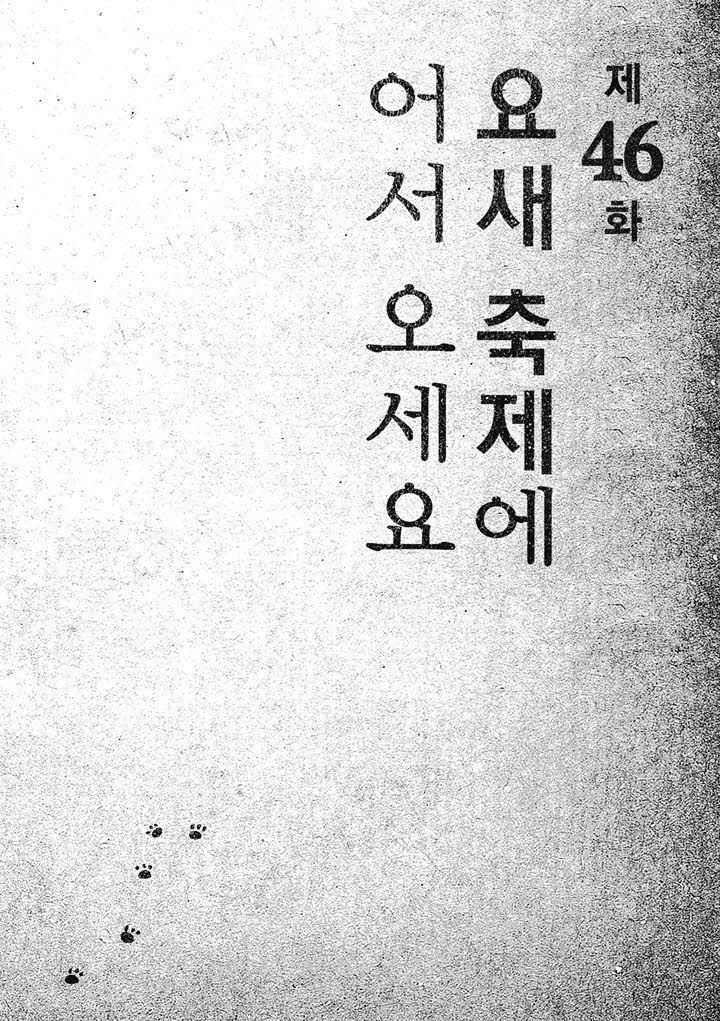 제46화
요새 축제에
어서 오세요